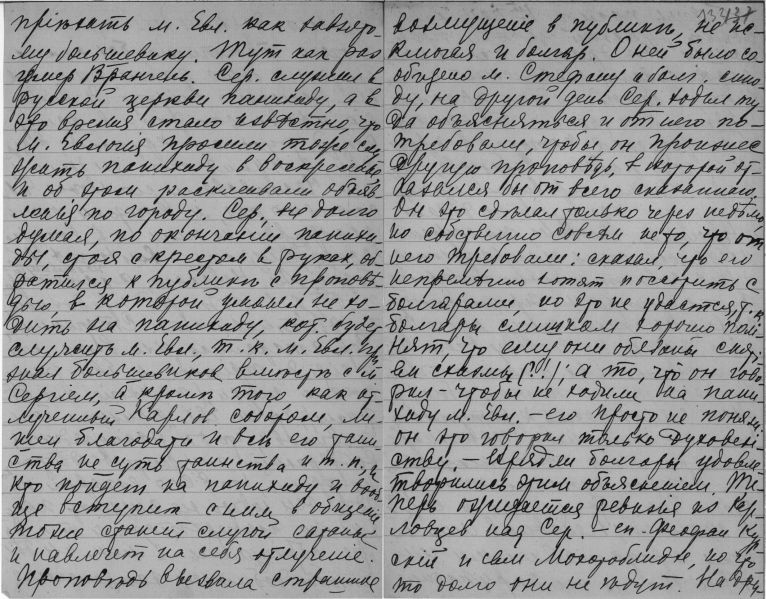 пріѣхать м. Евл. как завзято-
му большевику. Тут как раз
умер Врангель. Сер. служил в
русской церкви панихиду, а в
это время стало извѣстно, что
м. Евлогія просили тоже слу-
жить панихиду в воскресенье
и об этом расклеивали объяв-
ленія по городу. Сер., не долго
думая, по окончаніи панихи-
ды, стоя с крестом в руках, об-
ратился к публикѣ с проповѣ-
дью, в которой умолял не хо-
дить на панихиду, кот. будет
служить м. Евл., т. к. м. Евл.
знал большевиков вмѣстѣ с м.
Сергіем, а кромѣ того как от-
лученный Карлов. собором, ли-
шен благодати и всѣ его таин-
ства не суть таинства и т. п., и
кто пойдет на панихиду и вооб-
ще вступит с ним в общеніе
тоже станет слугой сатаны
и навлечет на себя отлученіе.
Проповѣдь вызвала страшное
возмущеніе в публикѣ, не ис-
ключая и болгар. О ней было со-
общено м. Стефану и болг. сино-
ду, на другой день Сер. ходил ту-
да объясняться и от него по-
требовали, чтобы он произнес
другую проповѣдь, в которой от-
казался бы от всего сказаннаго,
он это сдѣлал только через недѣлю,
но собственно совсѣм не то, что от
него требовали: сказал, что его
непремѣнно хотят поссорить с
болгарами, но это не удастся, т. к.
болгары слишком хорошо пом-
нят, что ему они обязаны сняті-
ем схизмы (!!), а то, что он гово-
рил – чтобы не ходили на пани-
хиду м. Евл. – его просто не поняли:
он это говорил только духовен-
ству. – Врядли болгары удовле-
творились этим объясненіем. Те-
перь ожидается ревизія из Кар-
ловцев над Сер. – еп. Феофан Кур-
скій и свящ., но что-
то долго они не ѣдут. На дру-